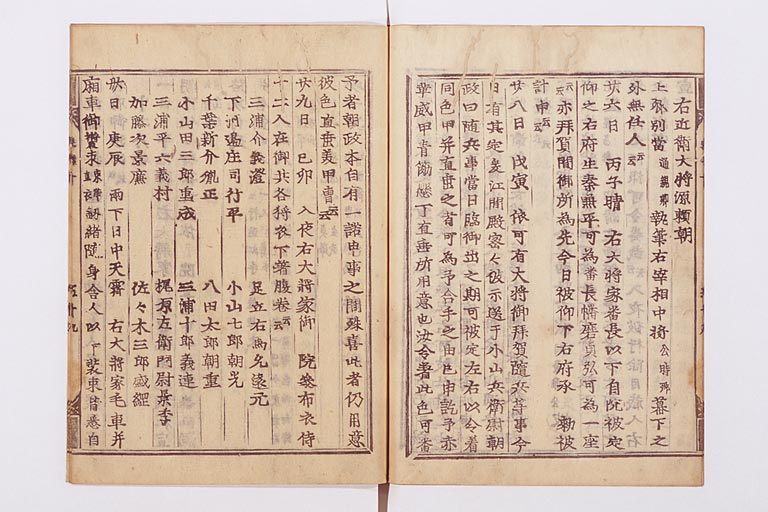 右近衛大将源頼朝
上卿別當通親卿 執筆右宰相中将公時卿 幕下之
外無任人云云
廿六日 丙子晴 右大将家番長以下自院被定
仰之右府生秦兼平可為番長播磨貞弘可為一座
云云亦拜賀間御所為先今日被仰下右府承 勅被
計申云云
廿八日 戊寅 依可有大将御拜賀隨兵等事今
日有其定多江間殿密々被示送于小山兵衛尉朝
政曰隨兵事當日臨御出之期可被定左右以令着
同色甲并直垂之者可為予合手之由已申訖予亦
華威甲青筋懸丁直垂所用意也汝令着此色可番
予者朝政本自有一諾申事之間殊喜此者仍用意
彼色直垂美甲云云
廿九日 己卯 入夜右大将家御 院參布衣侍
十二人在御共各狩衣下著腹卷云云
三浦介義澄 足立右馬允遠元
下河邊庄司行平 小山七郎朝光
千葉新介胤正 八田太郎朝重
小山田三郎重成 三浦十郎義連
三浦平六義村 梶原左衛門尉景季
加藤次景廉 佐々木三郎盛綱
卅日 庚辰 雨下日中天霽 右大将家毛車并
廂車御装束剱緒隨身舎人以下装束皆悉自